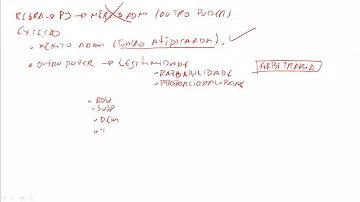 REGRA → PJ → MÉRITO ADM (OUTRO PODER)
EXCEÇÃO
• MÉRITO ADM (FUNÇÃO ATÍPICA ADM)
• OUTRO PODER → LEGITIMIDADE
• RAZOABILIDADE
• PROPORCIONALIDADE
ARBITRÁRIA
• ADV
• SUSP
• DEM